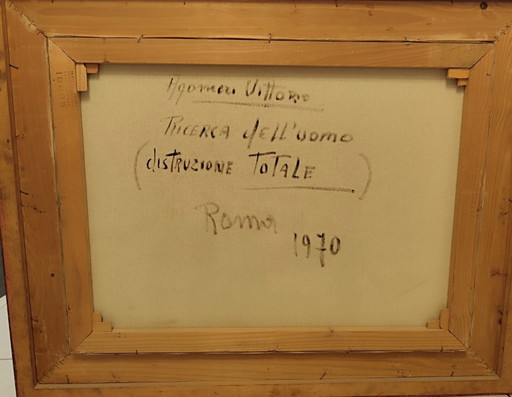 Vittorio
Ricerca dell'uomo
(distruzione Totale)
Roma
1970